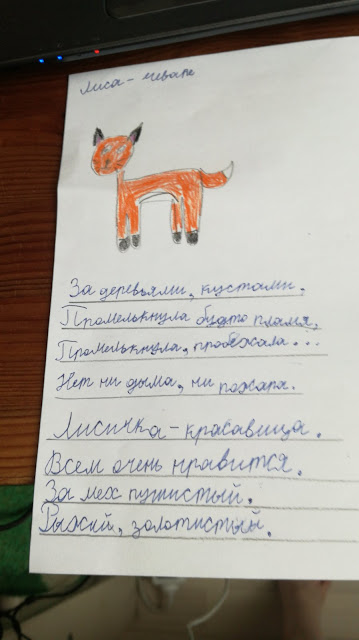 Лиса -
За деревьями, кустами.
Промелькнула будто пламя.
Промелькнула, пробежала...
Нет ни дыма, ни пожара.
Лисичка-красавица.
Всем очень нравится.
За мех пушистый.
Рыжий, золотистый.